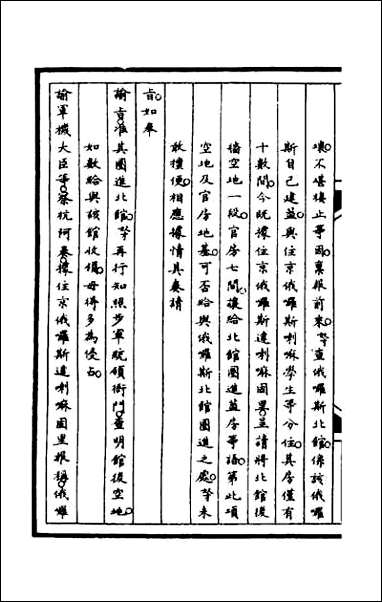 壞不堪棲止等因稟報前來等查俄羅斯北館係該俄羅
斯自己建蓋與住京俄羅斯剌嘛學生等分住其房僅有
十數間今既據住京俄羅斯達剌嘛固里並請將北館後
牆空地一段官房七間讓給北館圈進蓋房等語第此項
空地及官房地基可否給與俄羅斯北館圈進之處等未
敢擅便相應據情具奏請
旨如奉
諭旨准其圈進北館等再行知照步軍統領衙門查明館後空地
如數給與該館收領毋得多為侵占
諭軍機大臣等察杭阿奏據住京俄羅斯達剌嘛固里報稱俄羅